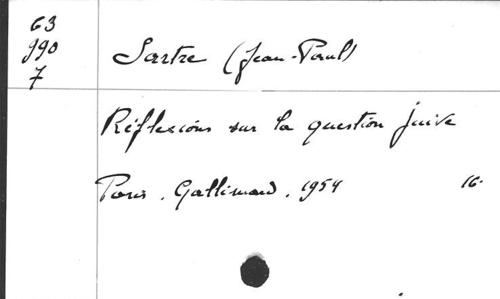 63
990
7
Sartre (Jean-Paul)
Réflexions sur la question juive
Paris, Gallimard, 1954 16-